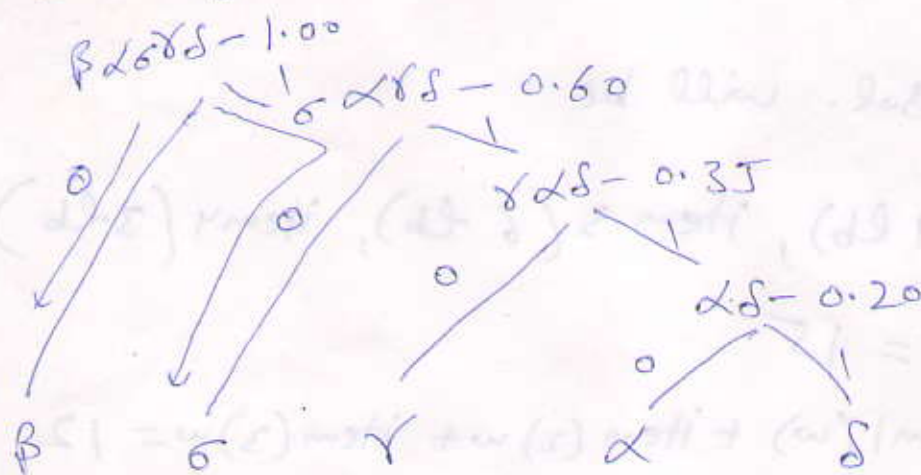 βασγδ - 1.00
1
σαγδ - 0.60
0
0
1
γαδ - 0.35
0
1
αδ - 0.20
0
1
β σ γ α δ